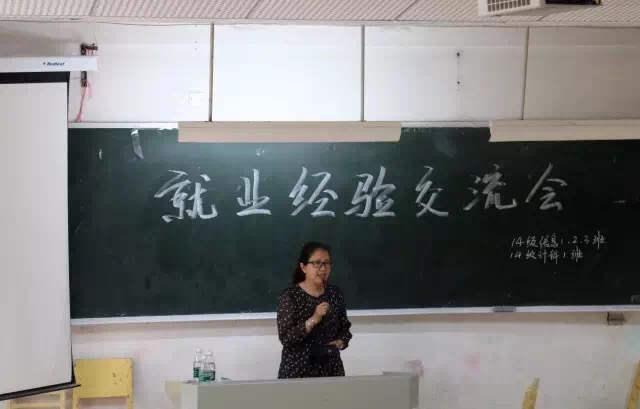 就业经验交流会
14级信息1.2.3班
14级计科1班